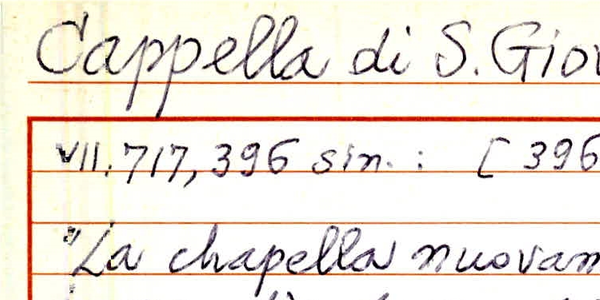 Cappella di S. Giov
VII. 717, 396 sin. : [ 396
"La chapella nuovam